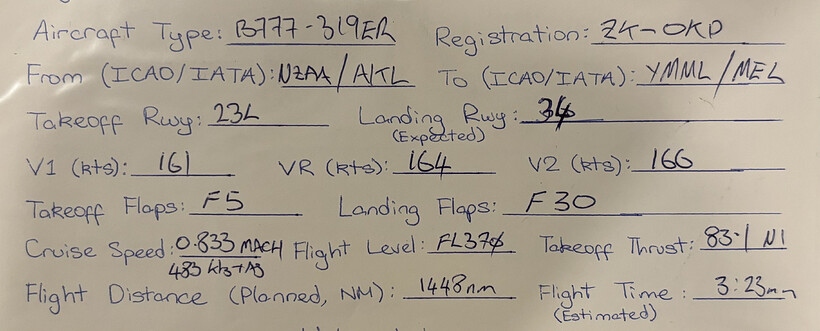 Aircraft Type: B777-319ER Registration: ZK-OKD
From (ICAO/IATA): NZAA/AKL To (ICAO/IATA): YMML/MEL
Takeoff Rwy: 23L Landing Rwy: 34
(Expected)
V1 (kts): 161 VR (kts): 164 V2 (kts): 166
Takeoff Flaps: F5 Landing Flaps: F30
Cruise Speed: 0.833 MACH Flight Level: FL370 Takeoff Thrust: 83.1 N1
483 kts TAS
Flight Distance (Planned, NM): 1448nm Flight Time: 3:23
(Estimated)